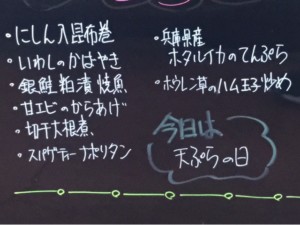 ・にしん入昆布巻
・いわしのかばやき
・銀鮭粕漬焼魚
・甘エビのからあげ
・切干大根煮
・スパゲティーナポリタン
・兵庫県産
ホタルイカのてんぷら
・ホウレン草のハム玉子炒め
今日は
天ぷらの日